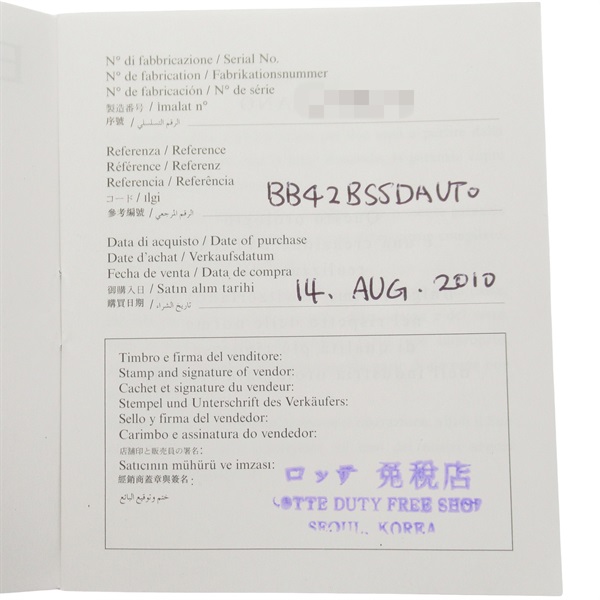 Nº di fabbricazione / Serial No.
Nº de fabrication / Fabrikationsnummer
Nº de fabricación / Nº de série
製造番号 / ìmalat nº
序號 / الرقم التسلسلي
Referenza / Reference
Référence / Referenz
Referencia / Referência
コード / Ilgi
參考編號 / الرقم المرجعي
BB42BSSDAUTO
Data di acquisto / Date of purchase
Date d'achat / Verkaufsdatum
Fecha de venta / Data de compra
御購入日 / Satın alım tarihi
購買日期 / تاريخ الشراء
14. AUG. 2010
Timbro e firma del venditore:
Stamp and signature of vendor:
Cachet et signature du vendeur:
Stempel und Unterschrift des Verkäufers:
Sello y firma del vendedor:
Carimbo e assinatura do vendedor:
店舗印と販売員の署名:
Satıcının mühürü ve imzası:
經銷商蓋章與簽名:
ختم وتوقيع البائع
ロッテ 免税店
LOTTE DUTY FREE SHOP
SEOUL, KOREA